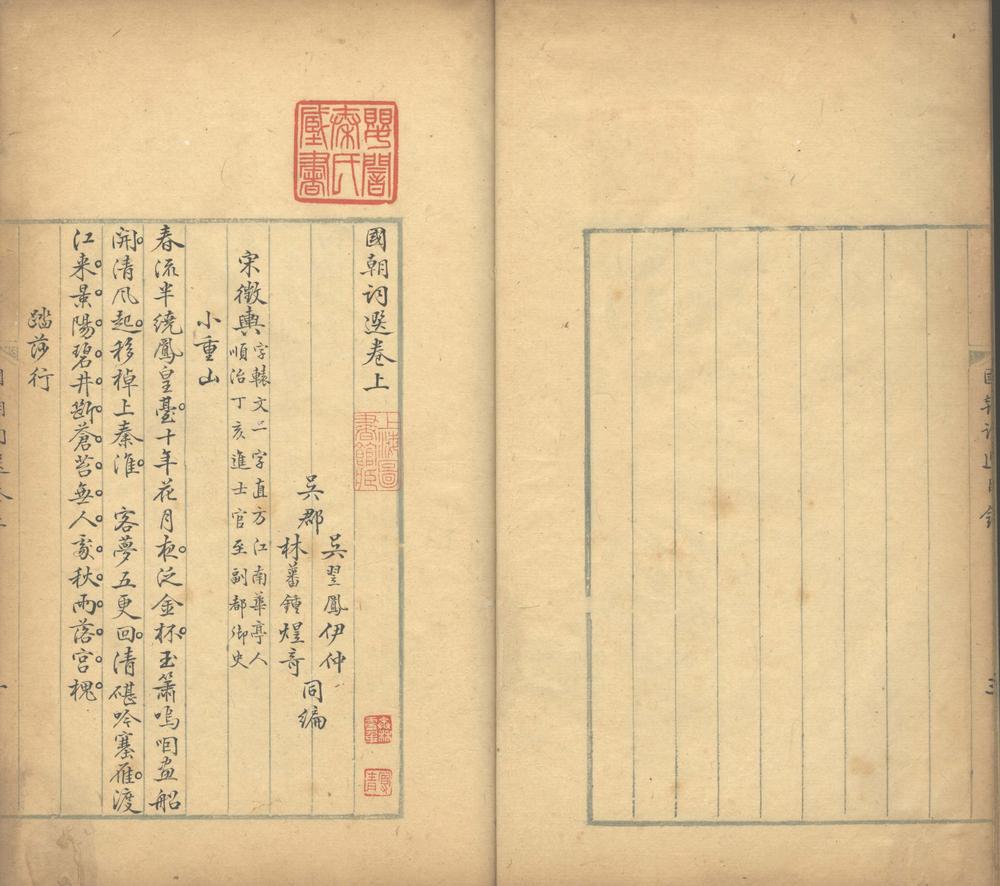 嬰闇
秦氏
藏書
國朝詞選卷上
上海圖
書館藏
吳郡
吳翌鳳伊仲
林蕃鍾煜奇
同編
宋徵輿
字轅文一字直方江南華亭人
順治丁亥進士官至副都御史
小重山
春流半繞鳳皇臺十年花月夜泛金杯玉簫嗚咽画船
開清风起移棹上秦淮　客夢五更回清砧吟塞雁渡
江来景陽碧井斷蒼苔無人處秋雨落宮槐
踏莎行